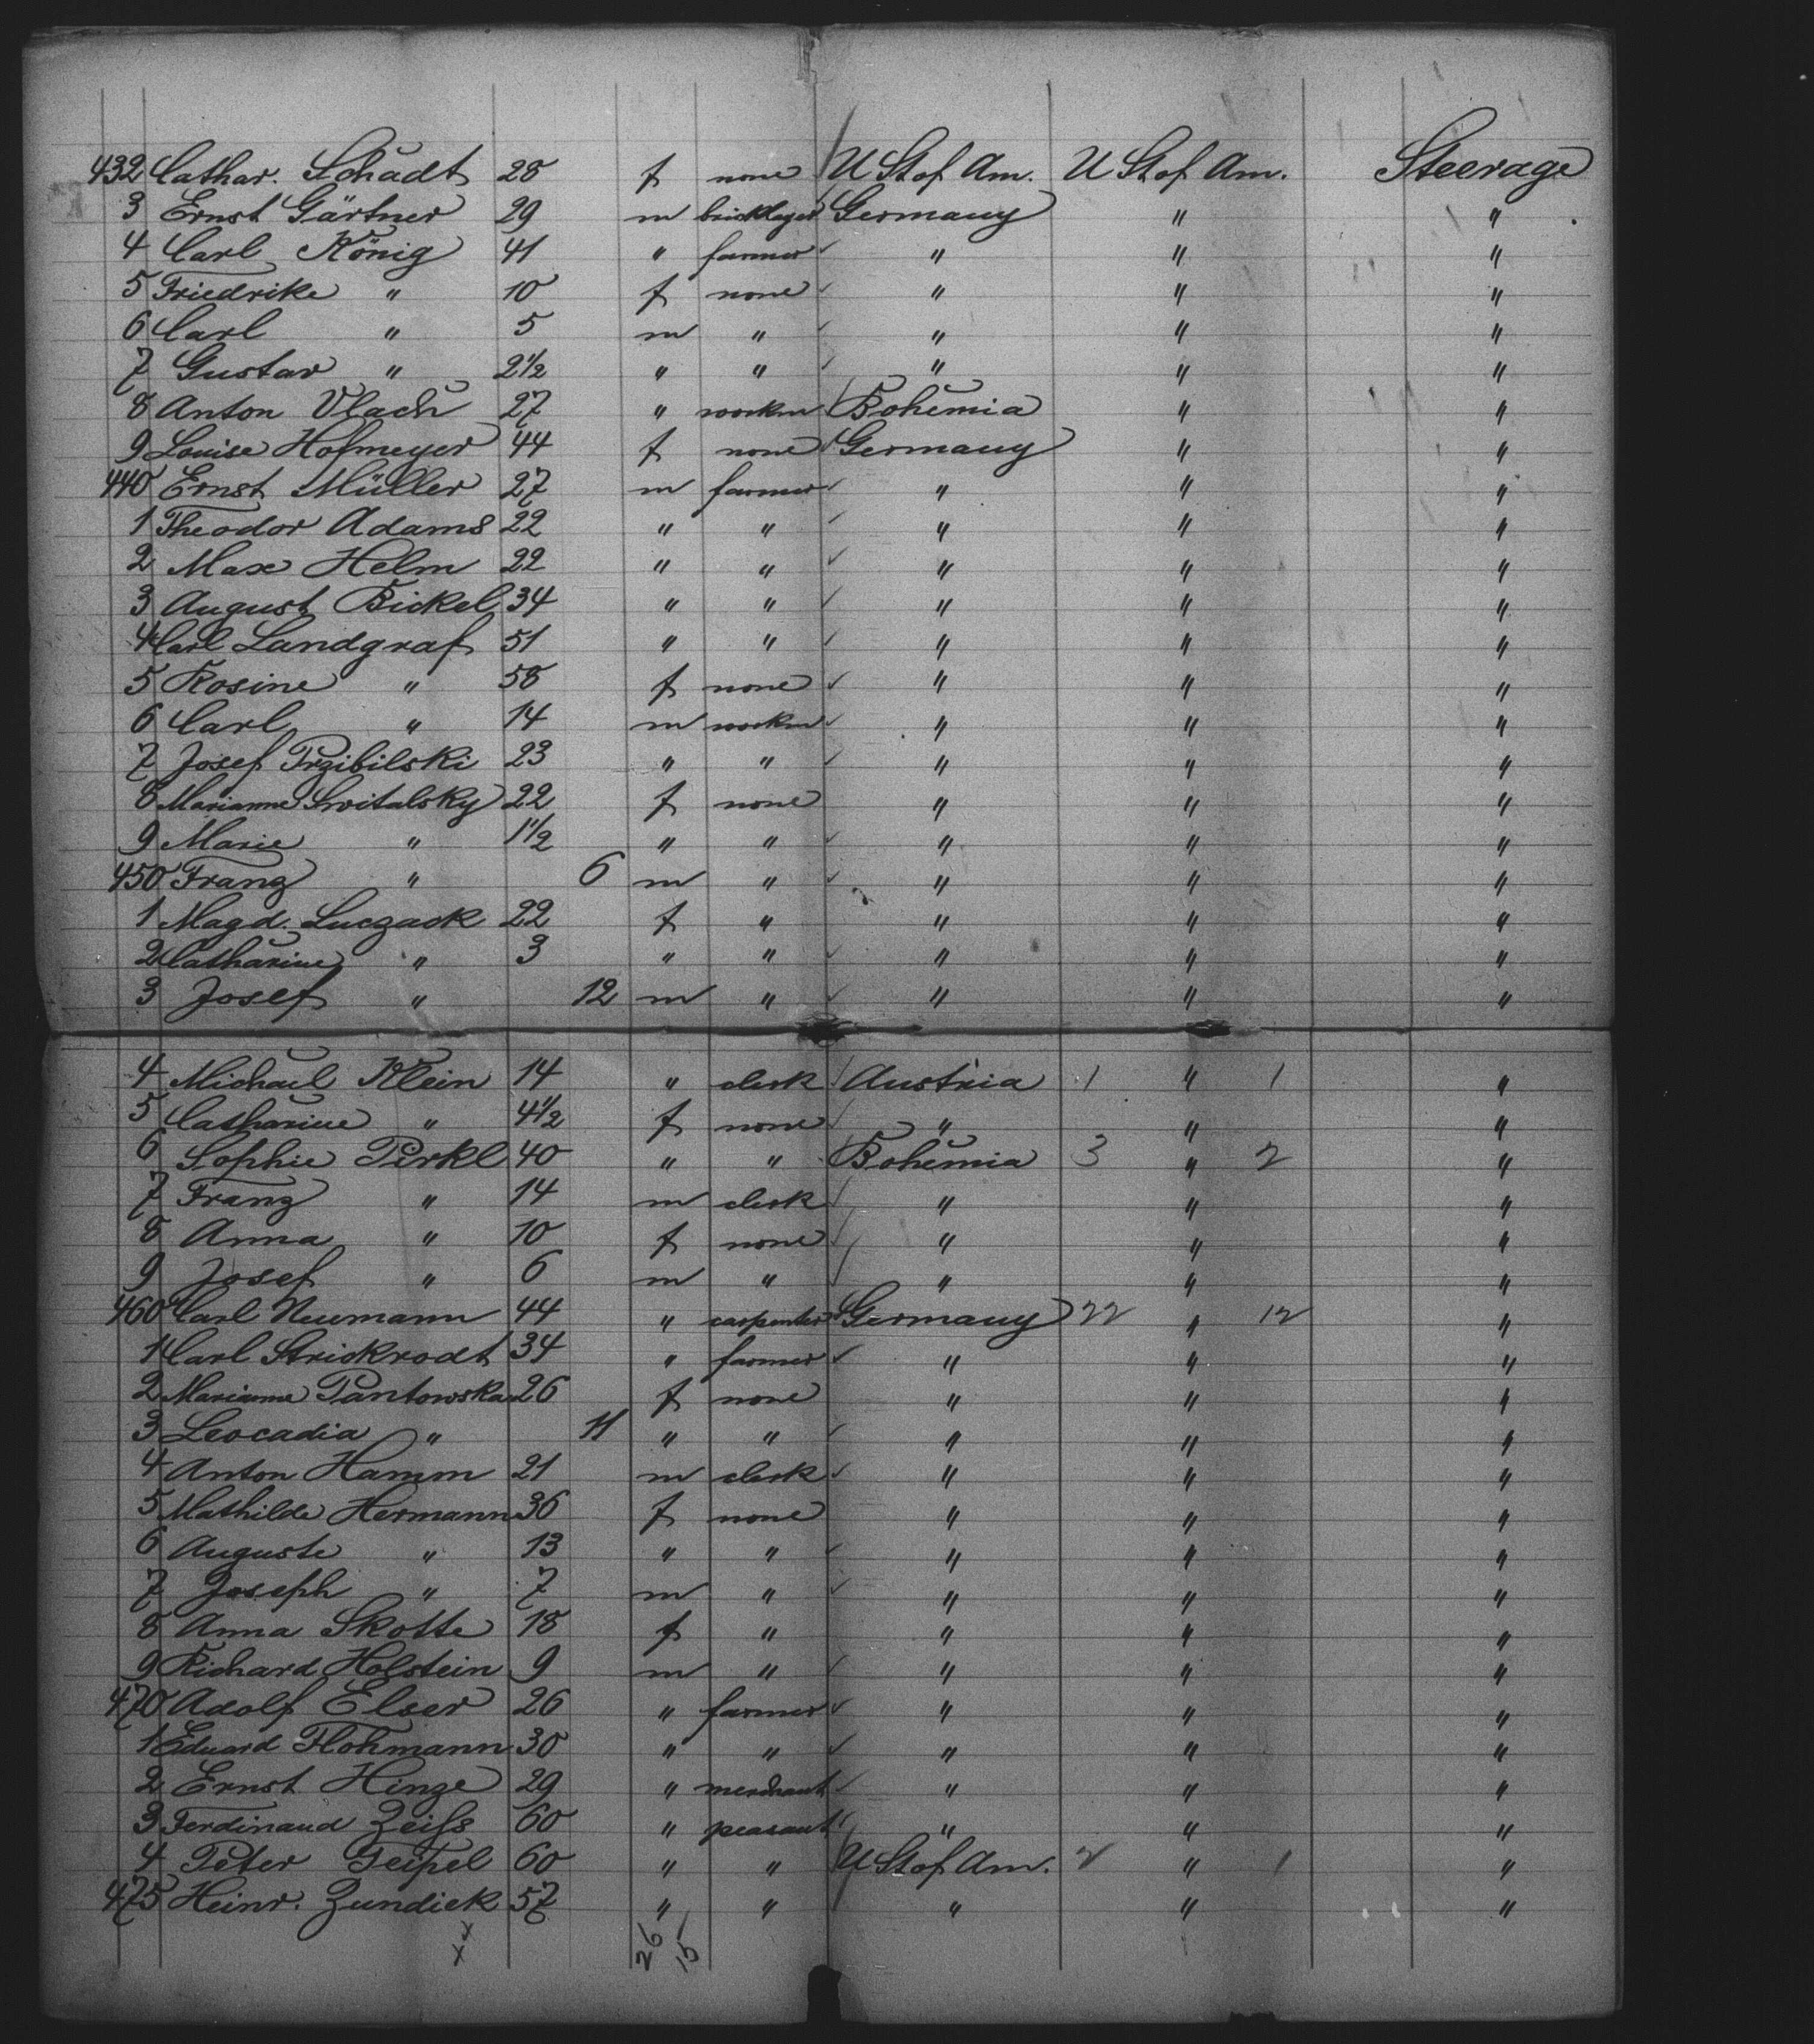 432 Cathar. Schadt 28 f none U St of Am. U St of Am. Steerage
3 Ernst Gärtner 29 m bricklayer Germany " "
4 Carl König 41 " farmer " " "
5 Friedrike " 10 f none " " "
6 Carl " 5 m " " " "
7 Gustav " 2½ " " " " "
8 Anton Vlach 27 " workm Bohemia " "
9 Louise Hofmeyer 44 f none Germany " "
440 Ernst Müller 27 m farmer " " "
1 Theodor Adams 22 " " " " "
2 Max Helm 22 " " " " "
3 August Bickel 34 " " " " "
4 Carl Landgraf 51 " " " " "
5 Rosine " 58 f none " " "
6 Carl " 14 m workm " " "
7 Josef Przibilski 23 " " " " "
8 Marianne Switalsky 22 f none " " "
9 Marie " 1½ " " " " "
450 Franz " 6 m " " " "
1 Magd. Luczack 22 f " " " "
2 Catharine " 3 " " " " "
3 Josef " 12 m " " " "
4 Michael Klein 14 " clerk Austria 1 " 1 "
5 Catharine " 4½ f none " " "
6 Sophie Pirkl 40 " " Bohemia 3 " 2 "
7 Franz " 14 m clerk " " "
8 Anna " 10 f none " " "
9 Josef " 6 m " " " "
460 Carl Neumann 44 " carpenter Germany 22 " 12 "
1 Carl Strickrodt 34 " farmer " " "
2 Marianne Pantowska 26 f none " " "
3 Leocadia " 11 " " " " "
4 Anton Hamm 21 m clerk " " "
5 Mathilde Hermann 36 f none " " "
6 Auguste " 13 " " " " "
7 Joseph " 7 m " " " "
8 Anna Skotte 18 f " " " "
9 Richard Holstein 9 m " " " "
470 Adolf Elser 26 " farmer " " "
1 Eduard Flohmann 30 " " " " "
2 Ernst Hinze 29 " merchant " " "
3 Ferdinand Zeifs 60 " peasant " " "
4 Peter Teipel 60 " " U St of Am. 2 " 1 "
475 Heinr. Zundick 57 " " " " "
x x 26 15